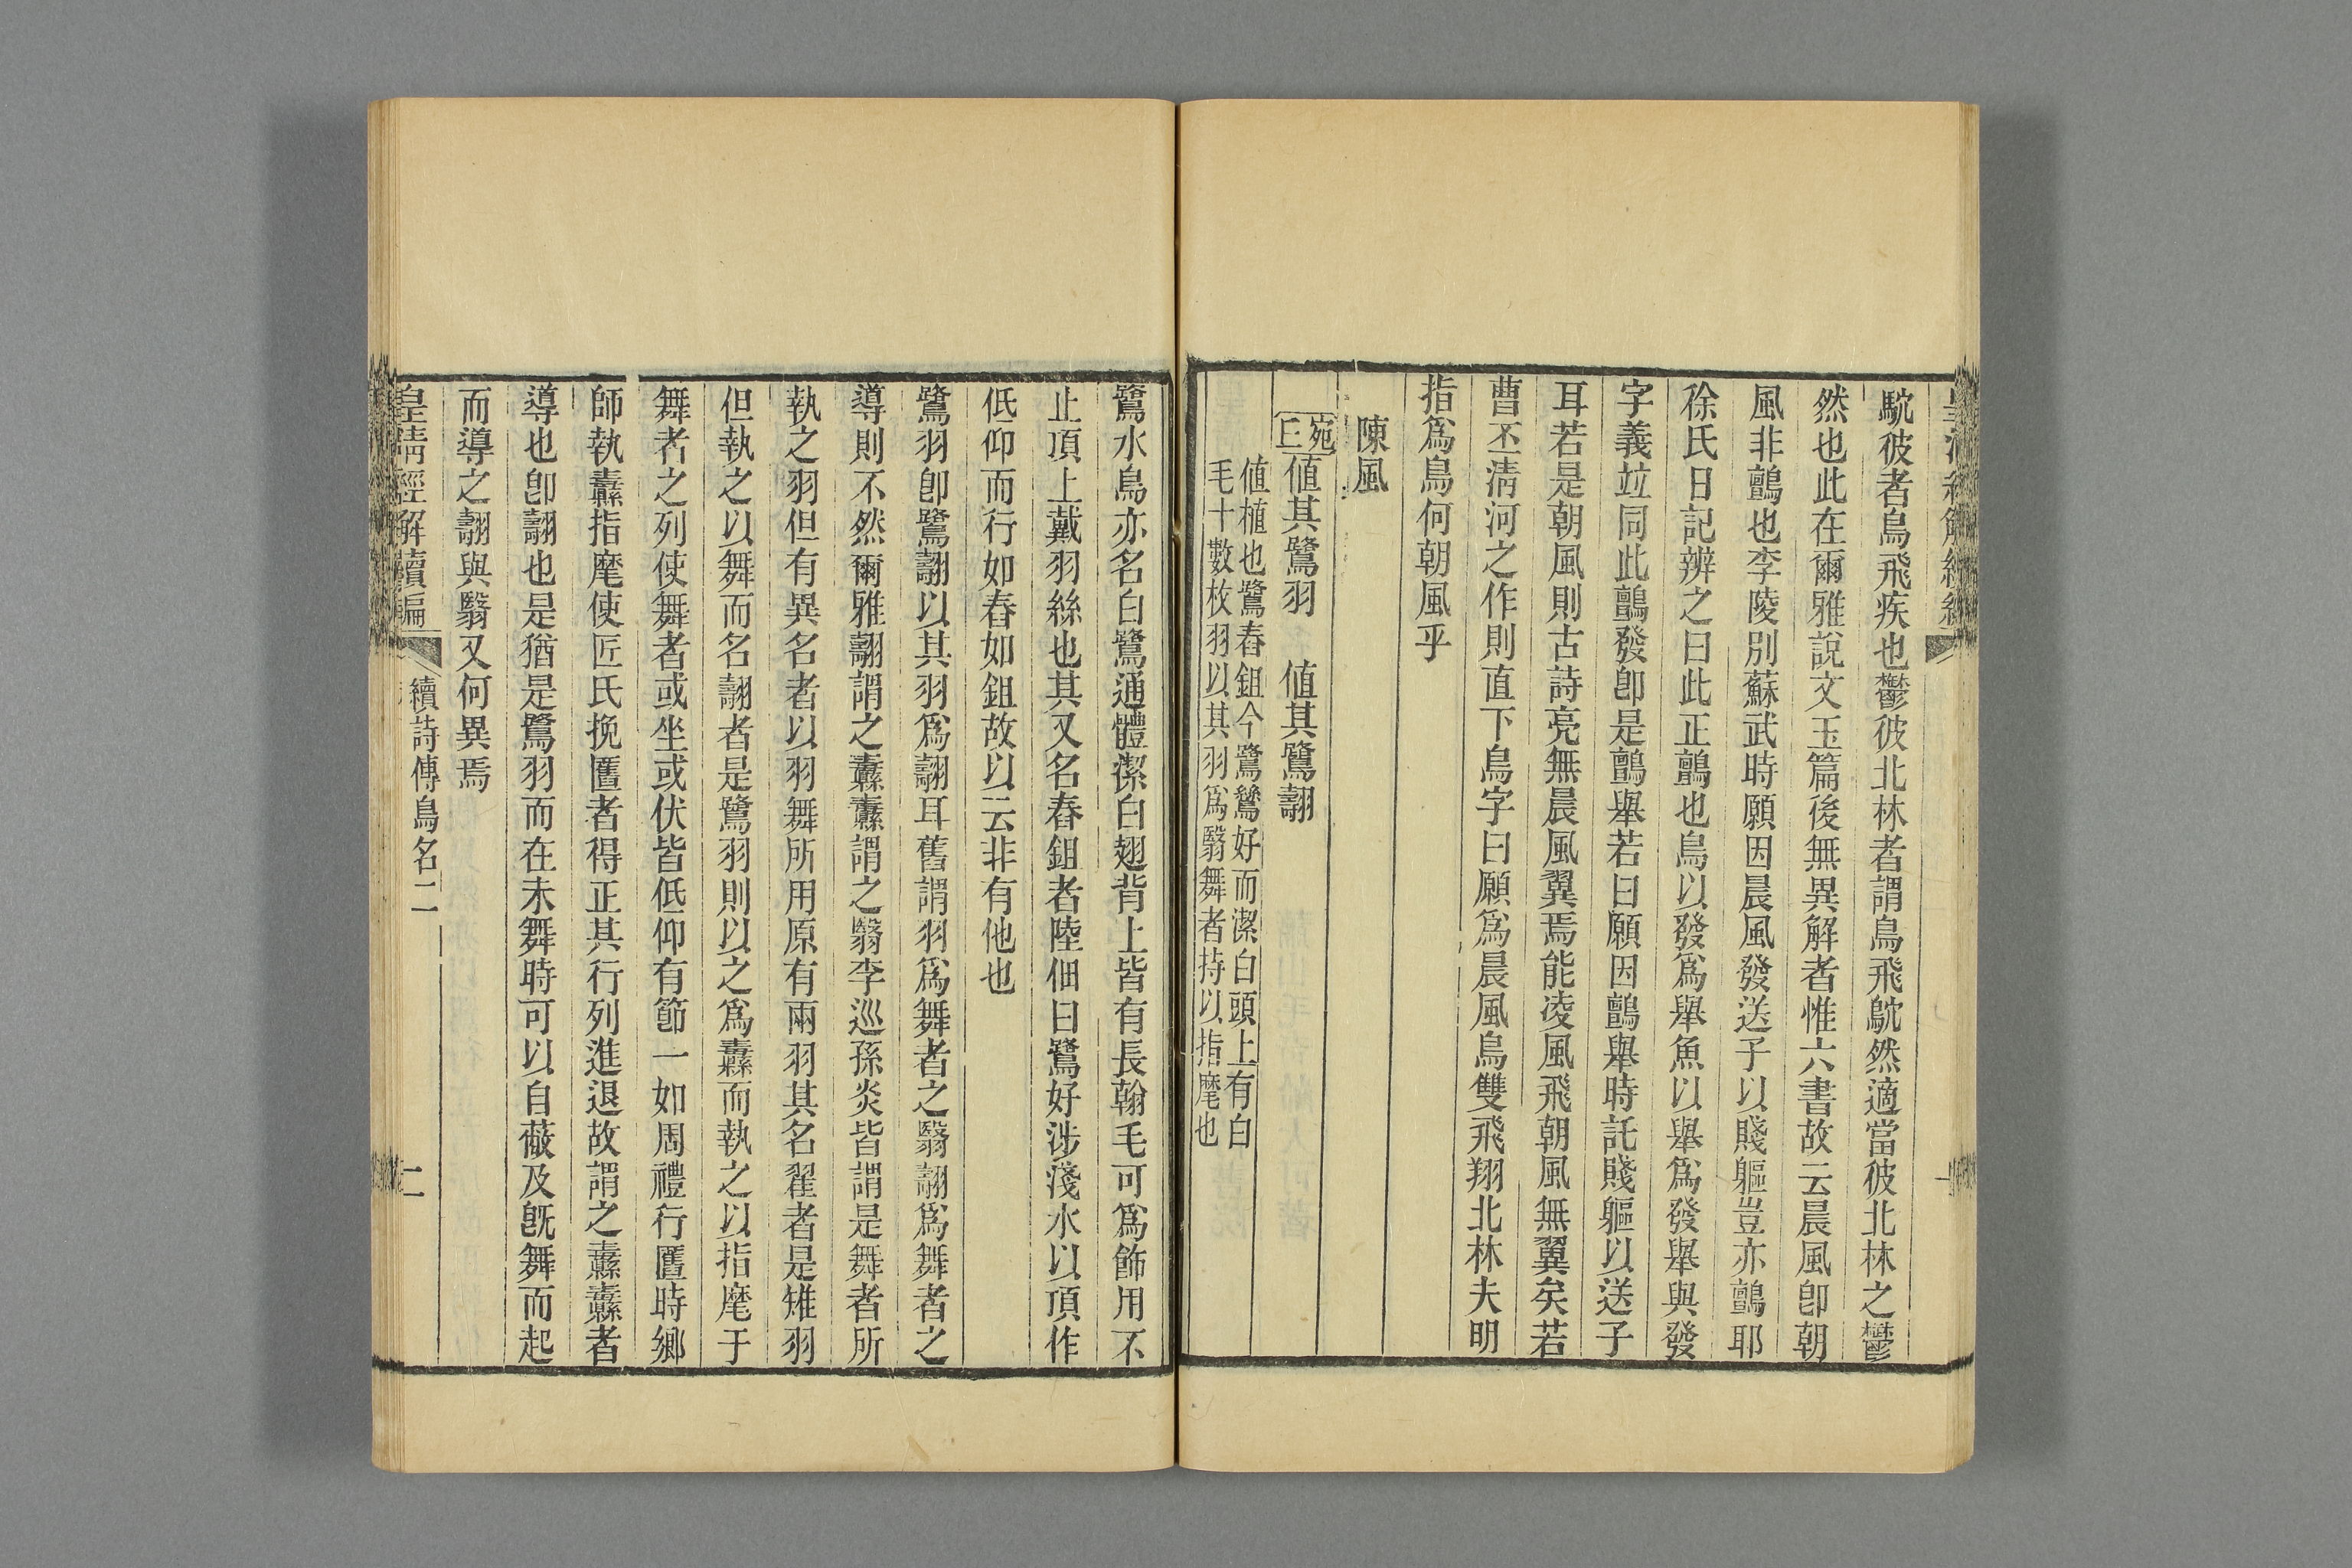 鴥彼者鳥飛疾也鬱彼北林者謂鳥飛鴥然適當彼北林之鬱
然也此在爾雅說文玉篇後無異解者惟六書故云晨風卽朝
風非鸇也李陵別蘇武時願因晨風發送子以賤軀豈亦鸇耶
徐氏日記辨之曰此正鸇也鳥以發爲舉魚以舉爲發舉與發
字義竝同此鸇發卽是鸇舉若曰願因鸇舉時託賤軀以送子
耳若是朝風則古詩亮無晨風翼焉能凌風飛朝風無翼矣若
曹丕淸河之作則直下鳥字曰願爲晨風鳥雙飛翔北林夫明
指爲鳥何朝風乎
陳風
宛丘 値其鷺羽 値其鷺翿
値植也鷺舂鉏今鷺鷥好而潔白頭上有白
毛十數枚羽以其羽爲翳舞者持以指麾也
鷺水鳥亦名白鷺通體潔白翅背上皆有長翰毛可爲飾用不
止頂上戴羽絲也其又名舂鉏者陸佃曰鷺好涉淺水以頂作
低仰而行如舂如鉏故以云非有他也
鷺羽卽鷺翿以其羽爲翿耳舊謂羽爲舞者之翳翿爲舞者之
導則不然爾雅翿謂之纛纛謂之翳李巡孫炎皆謂是舞者所
執之羽但有異名者以羽舞所用原有兩羽其名翟者是雉羽
但執之以舞而名翿者是鷺羽則以之爲纛而執之以指麾于
舞者之列使舞者或坐或伏皆低仰有節一如周禮行匶時鄉
師執纛指麾使匠氏挽匶者得正其行列進退故謂之纛纛者
導也卽翿也是猶是鷺羽而在未舞時可以自蔽及旣舞而起
而導之翿與翳又何異焉
皇淸經解續編 續詩傳鳥名二 二